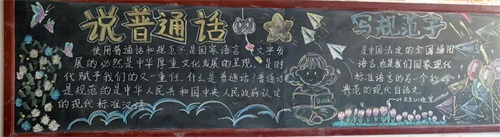 说普通话
写规范字
使用普通话和规范字是国家语言文字发
展的必然是中华厚重文化发展的呈现，是时
代赋予我们的又一重任，什么是普通话？普通话
是规范的是中华人民共和国中央人民政府认定
的现代标准汉语
是中国法定的全国通用
语言也是我们国家现代
标准语言的另一个称
典范的现代白话文
Book